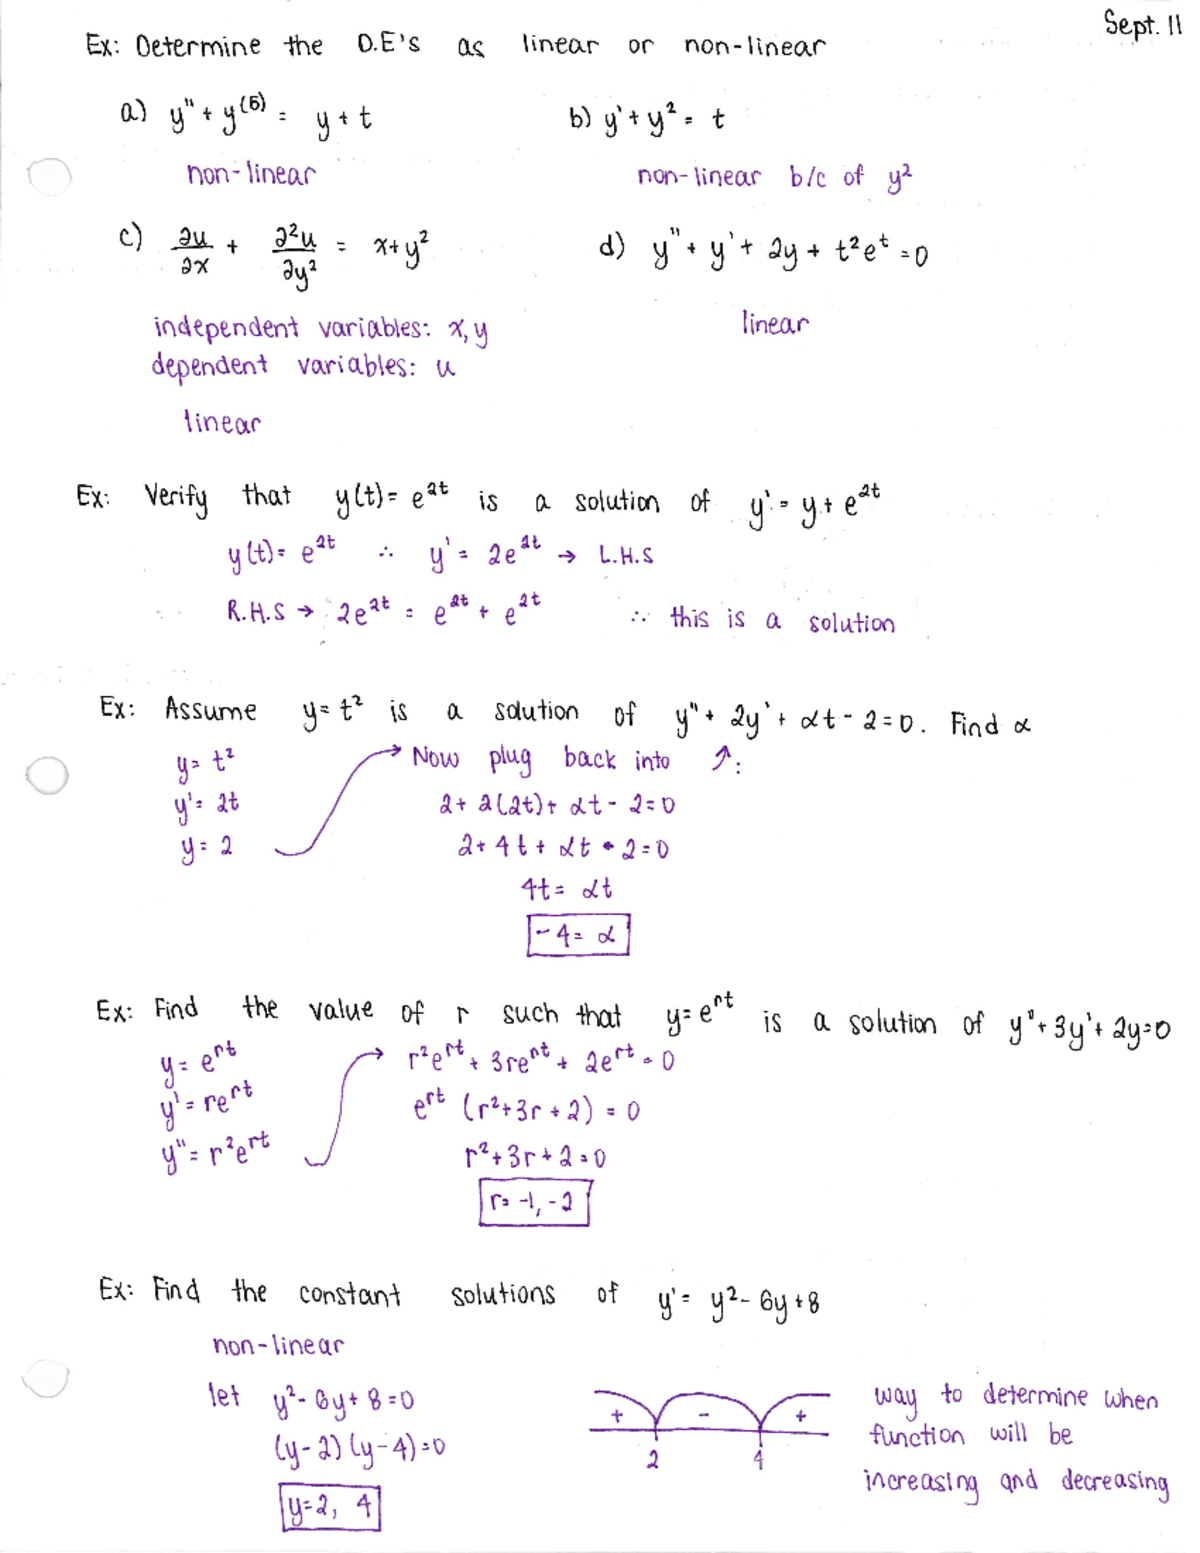 Sept. 11
Ex: Determine the D.E's as linear or non-linear
a) y" + y⁽⁵⁾ = y + t
b) y' + y² = t
non-linear
non-linear b/c of y²
c) ∂u/∂x + ∂²u/∂y² = x+y²
d) y" + y' + 2y + t²eᵗ = 0
independent variables: x, y
linear
dependent variables: u
linear
Ex: Verify that y(t) = e²ᵗ is a solution of y' = y + e²ᵗ
y(t) = e²ᵗ ∴ y' = 2e²ᵗ → L.H.S
R.H.S → 2e²ᵗ = e²ᵗ + e²ᵗ ∴ this is a solution
Ex: Assume y = t² is a solution of y" + 2y' + αt - 2 = 0. Find α
y = t² Now plug back into ↑:
y' = 2t 2 + 2(2t) + αt - 2 = 0
y = 2 2 + 4t + αt - 2 = 0
4t = αt
-4 = α
Ex: Find the value of r such that y = eʳᵗ is a solution of y" + 3y' + 2y = 0
y = eʳᵗ r²eʳᵗ + 3reʳᵗ + 2eʳᵗ = 0
y' = reʳᵗ eʳᵗ (r² + 3r + 2) = 0
y" = r²eʳᵗ r² + 3r + 2 = 0
r = -1, -2
Ex: Find the constant solutions of y' = y² - 6y + 8
non-linear
let y² - 6y + 8 = 0
(y-2)(y-4) = 0
y = 2, 4
+ - +
2 4
way to determine when
function will be
increasing and decreasing